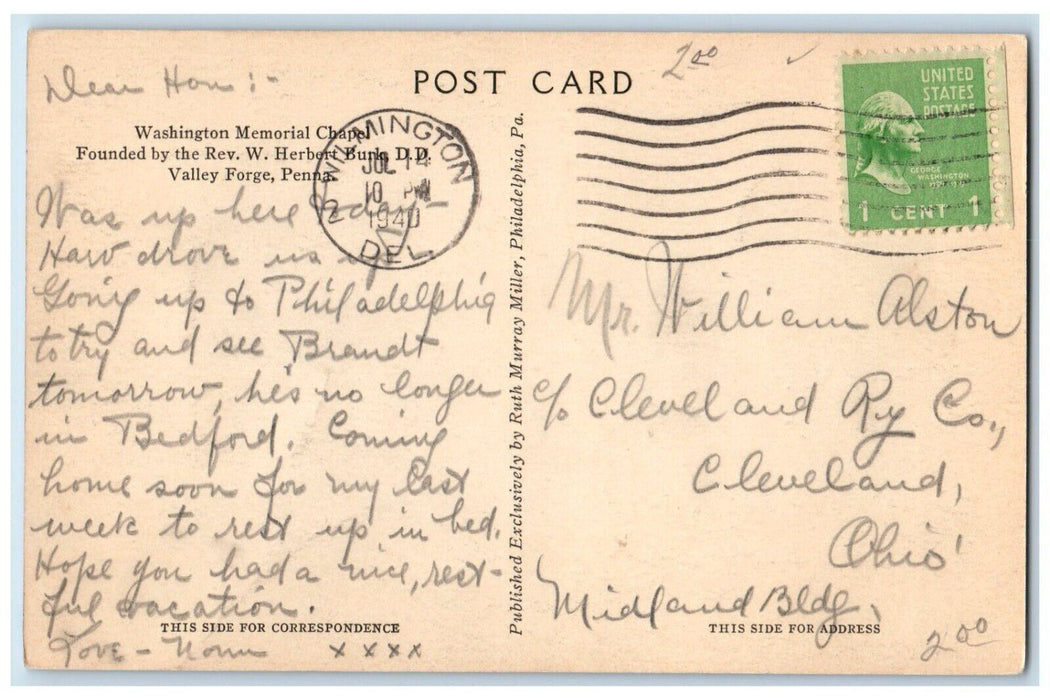 2.00
POST CARD
Dear Hon:-
Washington Memorial Chapel
Founded by the Rev. W. Herbert Burk, D.D.
Valley Forge, Penna.
WILMINGTON
JUL 14
10 PM
1940
DEL.
UNITED
STATES
POSTAGE
GEORGE
WASHINGTON
1 CENT 1
Was up here
drove us up.
Going up to Philadelphia
to try and see Brandt
tomorrow, he's no longer
in Bedford. Coming
home soon for my last
week to rest up in bed.
Hope you had a nice, rest-
ful vacation.
THIS SIDE FOR CORRESPONDENCE
Love - x x x x
Published Exclusively by Ruth Murray Miller, Philadelphia, Pa.
Mr. William Alston
c/o Cleveland Ry Co.,
Cleveland,
Ohio
Midland Bldg.
THIS SIDE FOR ADDRESS
2.00